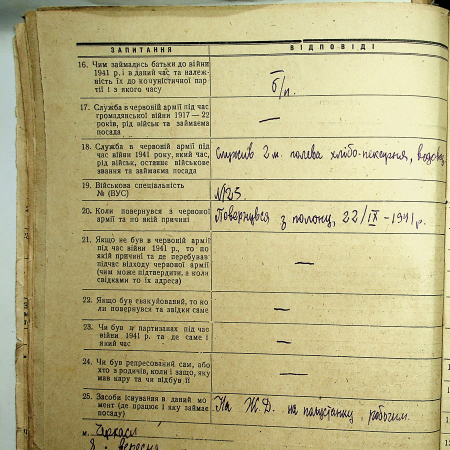 ЗАПИТАННЯ ВІДПОВІДІ
16. Чим займались батьки до війни
1941 р. і в даний час та належ-
ність їх до комуністичної пар-
тії і з якого часу
б/п.
17. Служба в червоній армії під час
громадянської війни 1917 — 22
років, рід військ та займаєма
посада
—
18. Служба в червоній армії під
час війни 1941 року, який час,
рід військ, останнє військове
звання та займаєма посада
Служив 2 м. полева хлібо-пекарня,
19. Військова спеціальність
№ (ВУС)
№ 25.
20. Коли повернувся з червоної
армії та по якій причині
Повернувся з полону, 22/IX - 1941 р.
21. Якщо не був в червоній армії
під час війни 1941 р., то по
якій причині та де перебував
під час відходу червоної армії
(чим може підтвердити, а коли
свідками то їх адреса)
—
22. Якщо був евакуйований, то ко
ли повернувся та звідки саме
—
23. Чи був в партизанах під час
війни 1941 р. та де саме і
який час
—
24. Чи був репресований сам, або
хто з родичів, коли і за що, яку
мав кару та чи відбув її
—
25. Засоби існування в даний мо
мент (де працює і яку займає
посаду)
На Ж.Д. на полустанку, робочим.
м. Черкаси
8. вересня